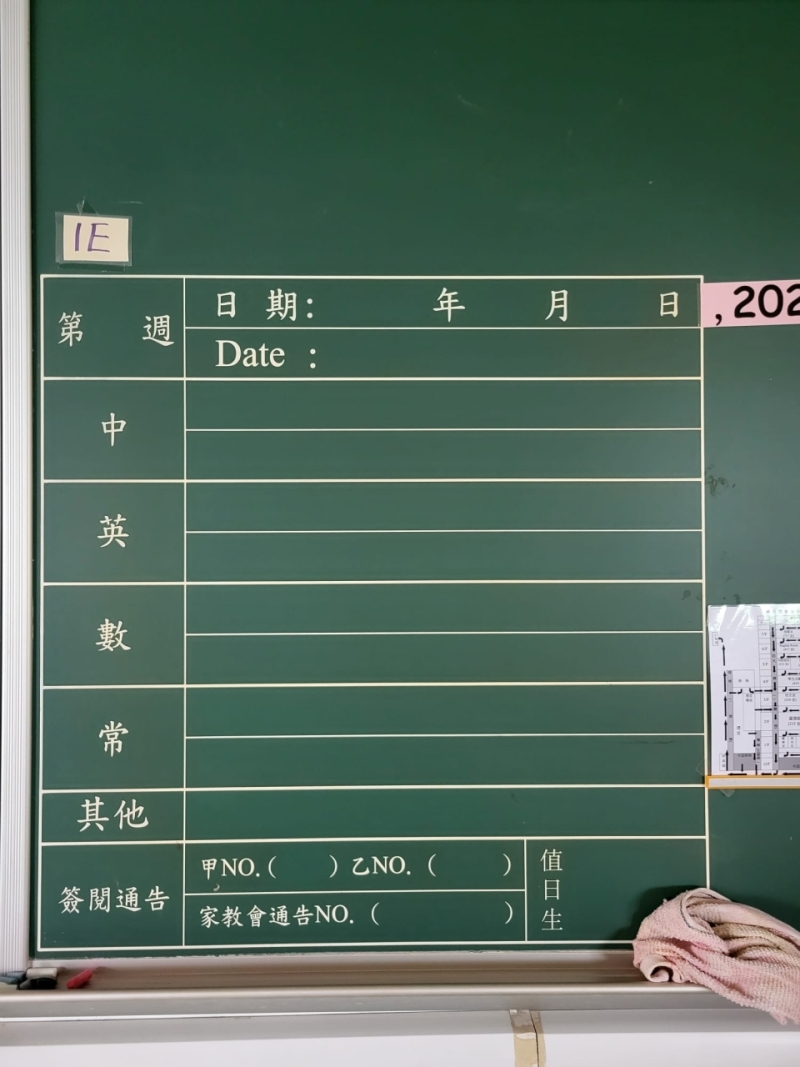 1E
第 週
日 期: 年 月 日
, 202
Date :
中
英
數
常
其他
簽閱通告
甲NO.( ) 乙NO. ( )
家教會通告NO. ( )
值日生